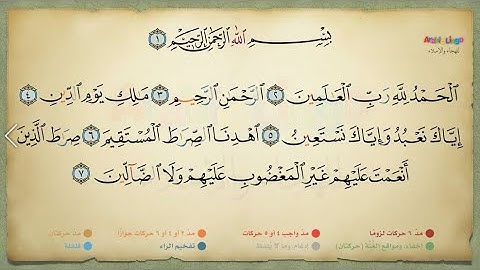 Arabic Lingo
للهجاء والإملاء
بِسْمِ ٱللَّهِ ٱلرَّحْمَٰنِ ٱلرَّحِيمِ ١
ٱلْحَمْدُ لِلَّهِ رَبِّ ٱلْعَٰلَمِينَ ٢ ٱلرَّحْمَٰنِ ٱلرَّحِيمِ ٣ مَٰلِكِ يَوْمِ ٱلدِّينِ ٤
إِيَّاكَ نَعْبُدُ وَإِيَّاكَ نَسْتَعِينُ ٥ ٱهْدِنَا ٱلصِّرَٰطَ ٱلْمُسْتَقِيمَ ٦ صِرَٰطَ ٱلَّذِينَ
أَنْعَمْتَ عَلَيْهِمْ غَيْرِ ٱلْمَغْضُوبِ عَلَيْهِمْ وَلَا ٱلضَّآلِّينَ ٧
مد ٦ حركات لزومًا مد واجب ٤ او ٥ حركات مد ٢ او ٤ او ٦ حركات جوازًا مد حركتان
إخفاء، ومواقع الغنة (حركتان) إدغام، وما لا يلفظ تفخيم الراء قلقلة